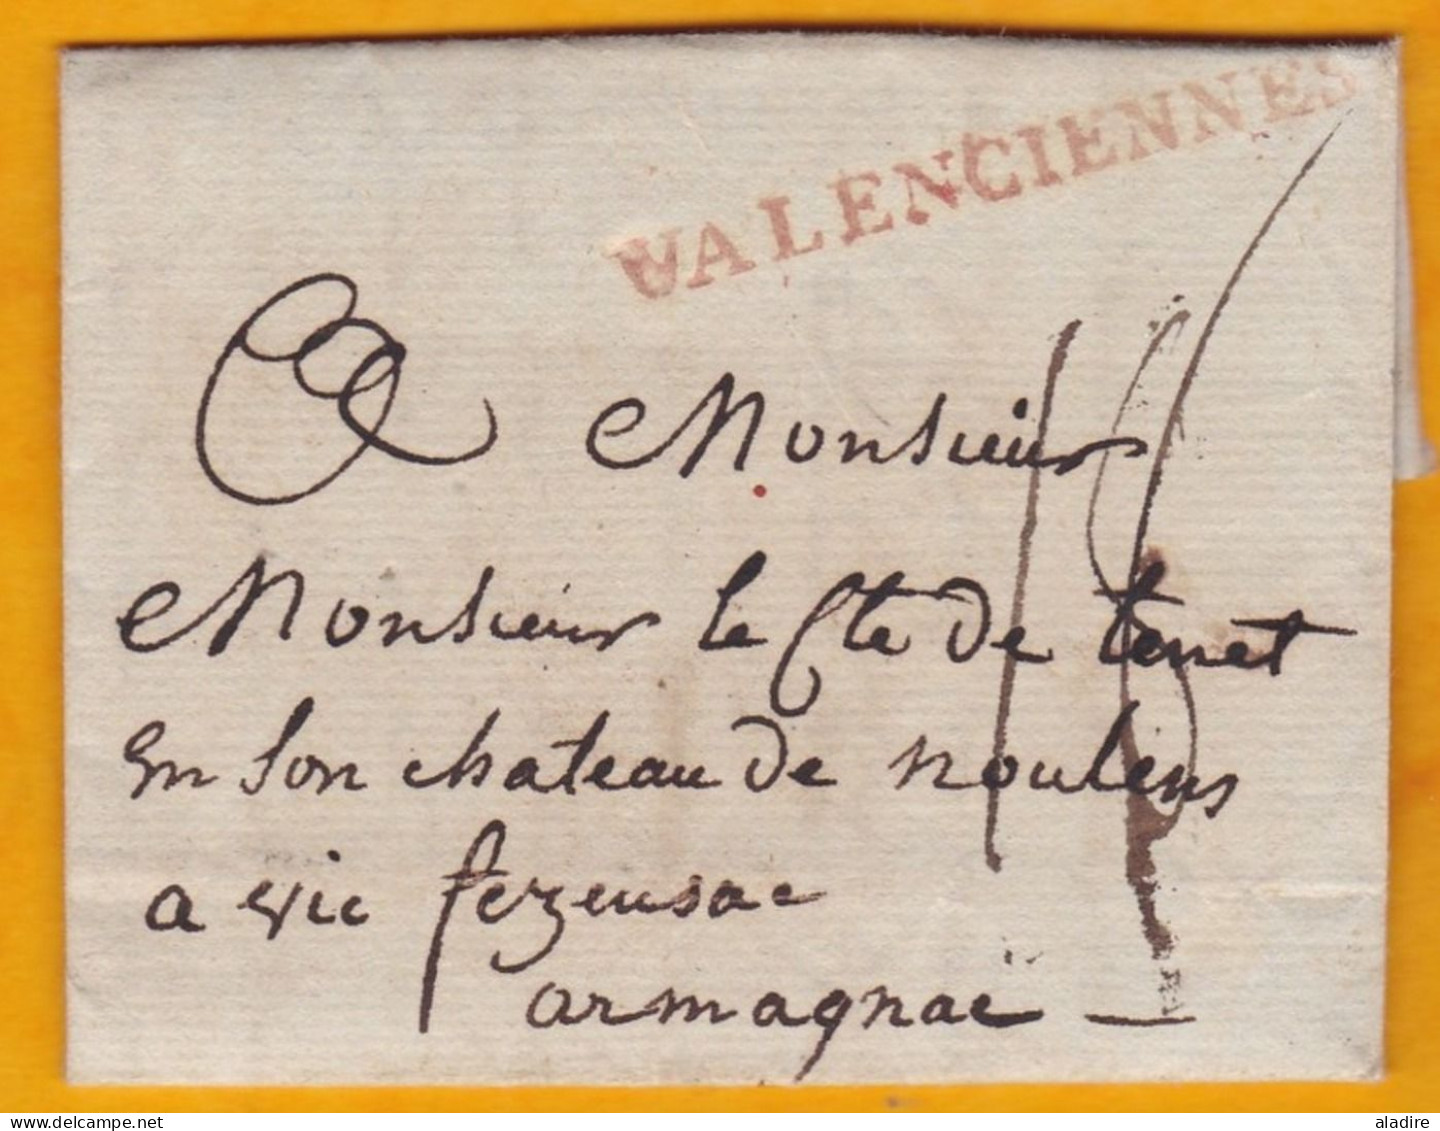 VALENCIENNES
A Monsieur
Monsieur le Cte de tenet
En son chateau de noulens
a vic fezensac
armagnac
delcampe.net
aladire